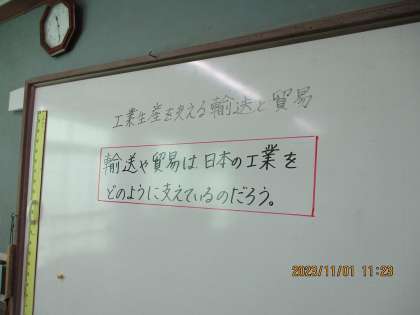 工業生産を支える輸送と貿易
輸送や貿易は、日本の工業を
どのように支えているのだろう。
2023/11/01 11:23